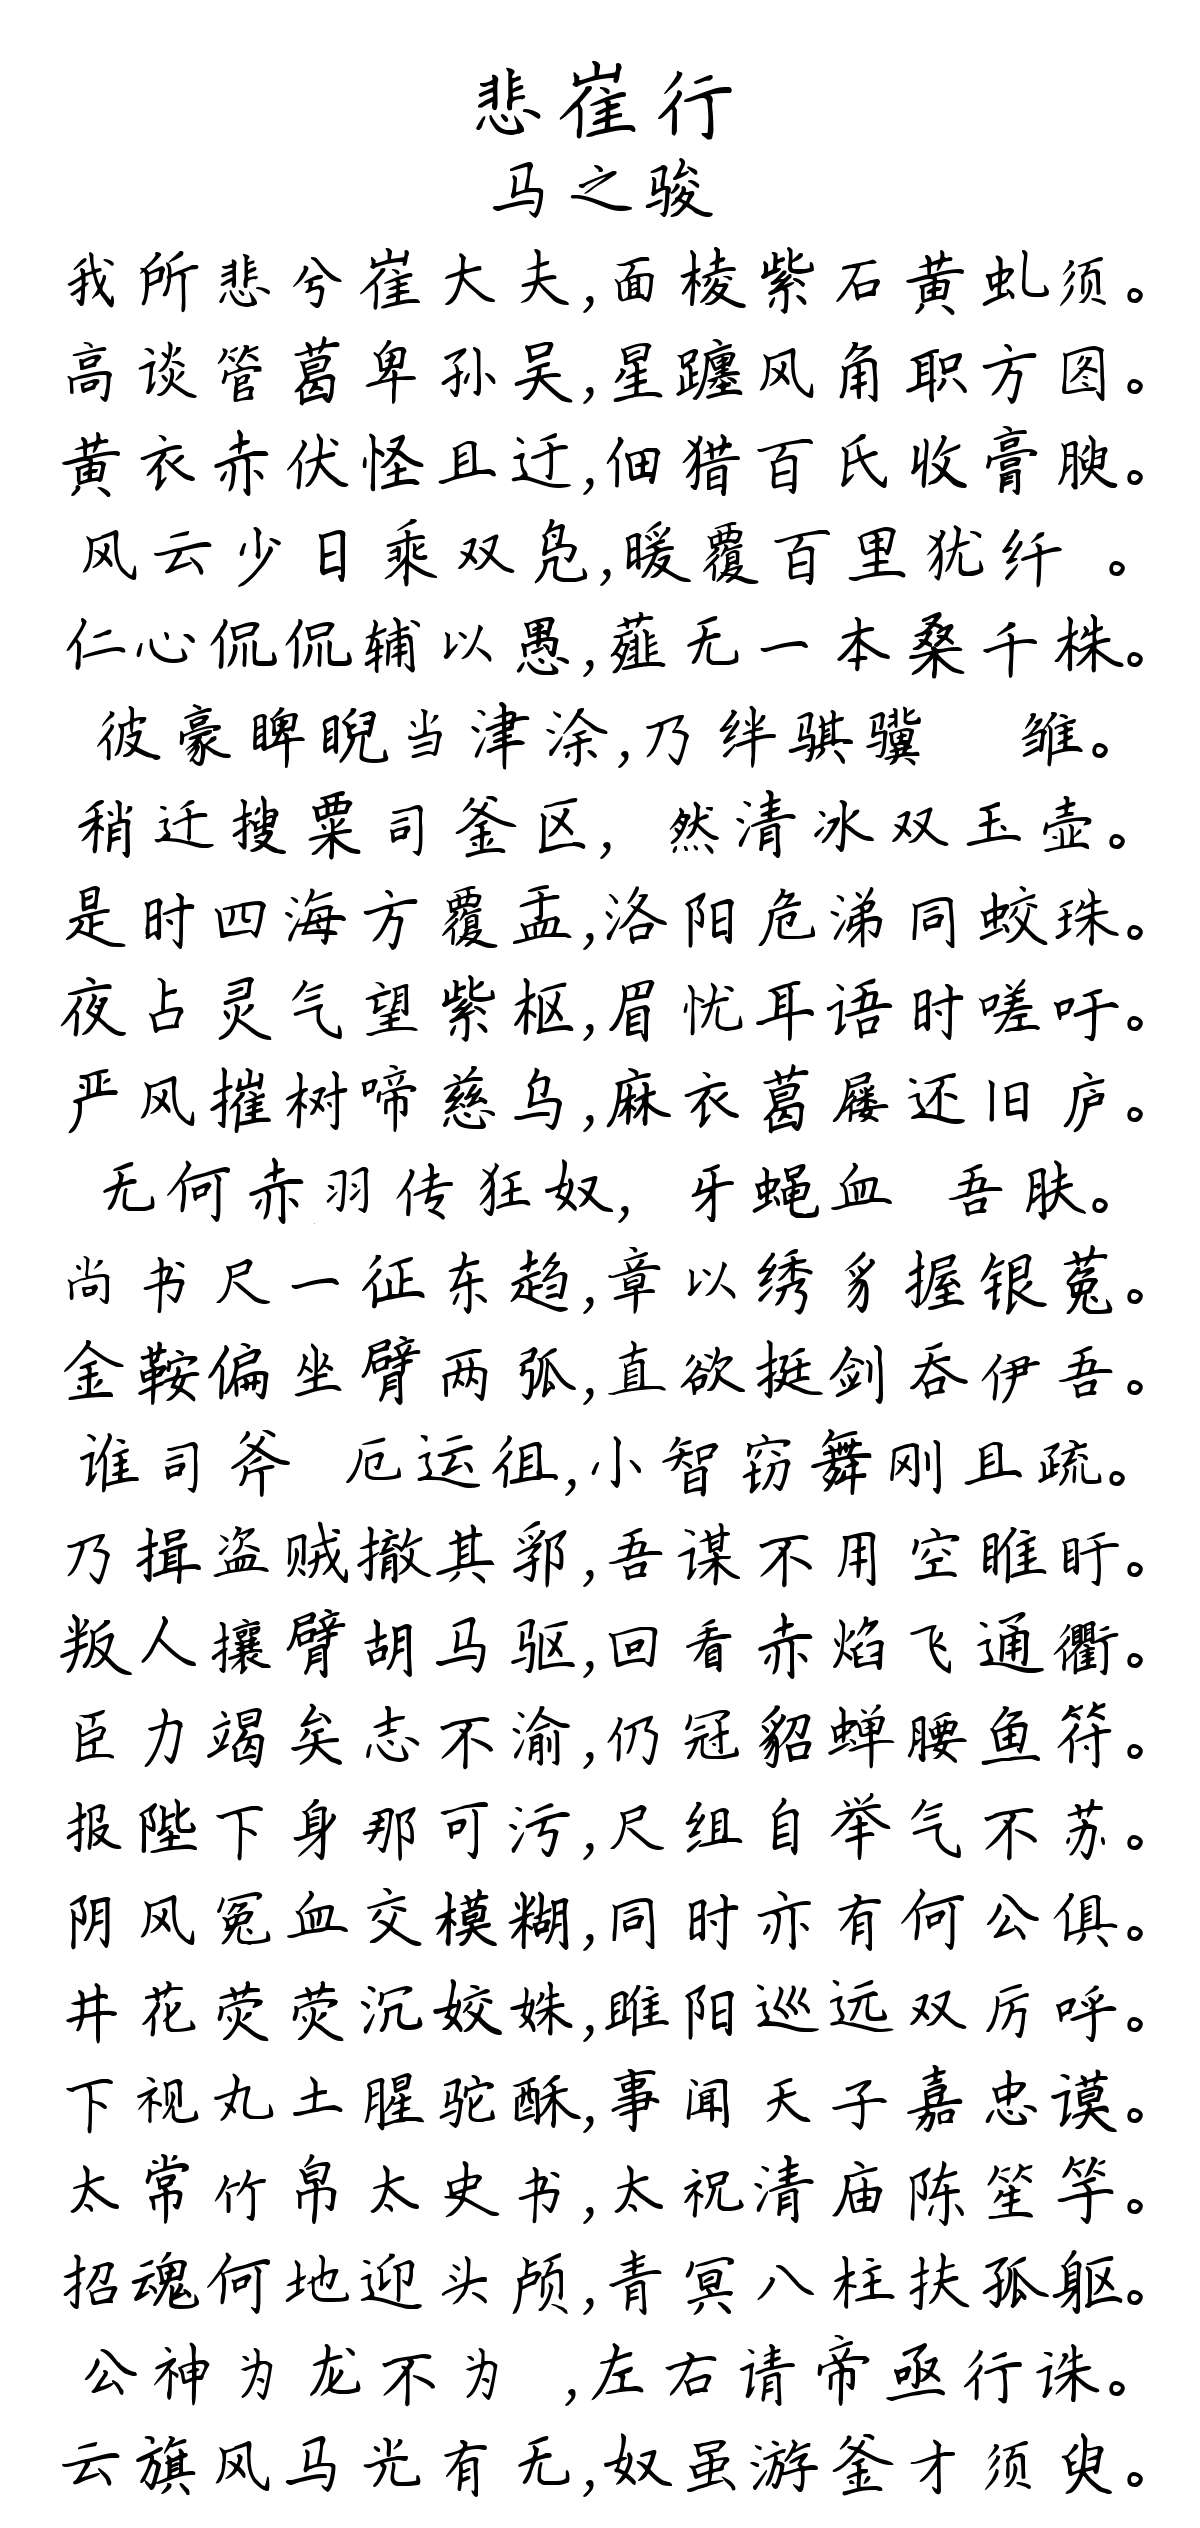 悲崔行
马之骏
我所悲兮崔大夫,面棱紫石黄虬须。
高谈管葛卑孙吴,星躔风角职方图。
黄衣赤伏怪且迂,佃猎百氏收膏腴。
风云少日乘双凫,暖覆百里犹纤 。
仁心侃侃辅以愚,薤无一本桑千株。
彼豪睥睨当津涂,乃绊骐骥 雏。
稍迁搜粟司釜区, 然清冰双玉壶。
是时四海方覆盂,洛阳危涕同蛟珠。
夜占灵气望紫枢,眉忧耳语时嗟吁。
严风摧树啼慈乌,麻衣葛屦还旧庐。
无何赤羽传狂奴, 牙蝇血 吾肤。
尚书尺一征东趋,章以绣豸握银菟。
金鞍偏坐臂两弧,直欲挺剑吞伊吾。
谁司斧 厄运徂,小智窃舞刚且疏。
乃揖盗贼撤其郛,吾谋不用空睢盱。
叛人攘臂胡马驱,回看赤焰飞通衢。
臣力竭矣志不渝,仍冠貂蝉腰鱼符。
报陛下身那可污,尺组自举气不苏。
阴风冤血交模糊,同时亦有何公俱。
井花荧荧沉姣姝,雎阳巡远双厉呼。
下视丸土腥驼酥,事闻天子嘉忠谟。
太常竹帛太史书,太祝清庙陈笙竽。
招魂何地迎头颅,青冥八柱扶孤躯。
公神为龙不为 ,左右请帝亟行诛。
云旗风马光有无,奴虽游釜才须臾。